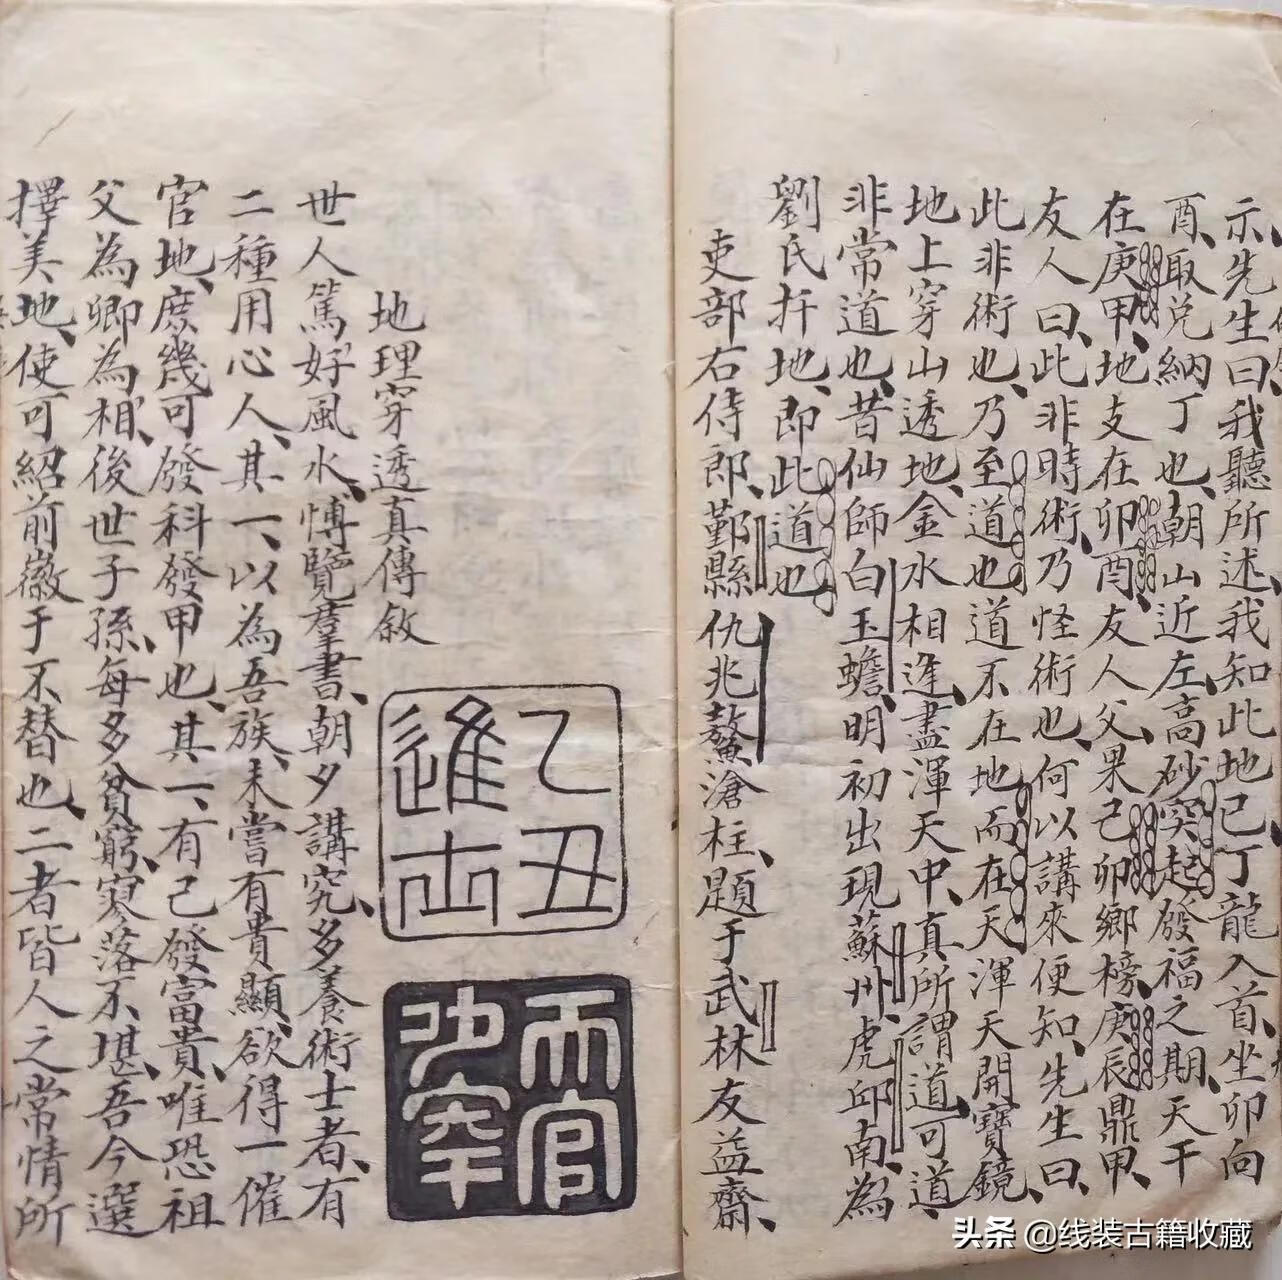 示先生曰我聽所述、我知此地巳丁龍入首坐卯向
酉、取兌納丁也、朝山近左高砂突起發福之期、天干
在庚甲、地支在卯酉、友人父果己卯鄉榜、庚辰鼎甲、
友人曰、此非時術、乃怪術也、何以講來便知、先生曰、
此非術也、乃至道也道不在地而在天渾天開寶鏡、
地上穿山透地、金水相逢、盡渾天中、真所謂道可道、
非常道也、昔仙師白玉蟾、明初出現蘇州、虎邱南、為
劉氏扦地、即此道也
吏部右侍郎、鄞縣仇兆鰲滄柱、題于武林友益齋、
乙丑
進士
天官
少宰
地理穿透真傳敘
世人篤好風水、博覽羣書、朝夕講究、多養術士者、有
二種用心人、其一、以為吾族、未嘗有貴顯、欲得一催
官地、庶幾可發科發甲也、其一、有己發富貴、唯恐祖
父為卿為相、後世子孫、每多貧窮、寥落不堪、吾今選
擇美地、使可紹前徽于不替也、二者皆人之常情所
头条 @线装古籍收藏